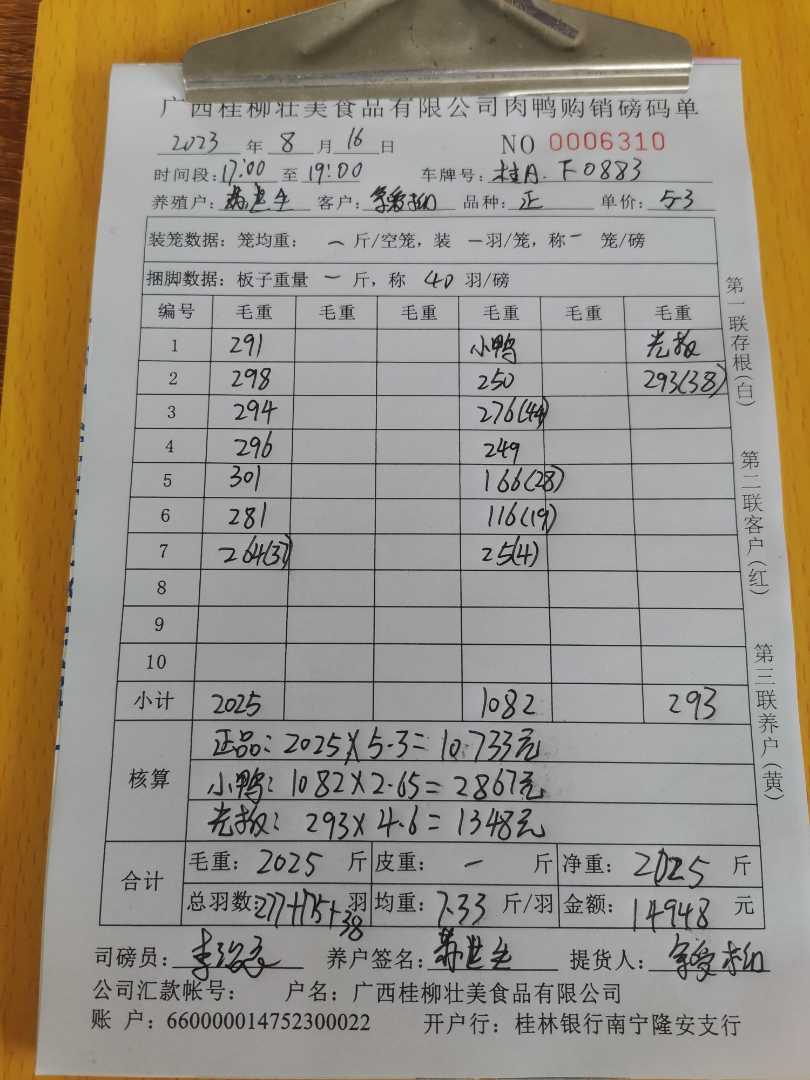 广西桂柳壮美食品有限公司肉鸭购销磅码单
2023 年 8 月 16 日 NO 0006310
时间段: 17:00 至 19:00 车牌号: 桂A.F0883
养殖户: 客户: 品种: 正 单价: 5-3
装笼数据: 笼均重: 一 斤/空笼, 装 一 羽/笼, 称 一 笼/磅
捆脚数据: 板子重量 一 斤, 称 40 羽/磅
编号 毛重 毛重 毛重 毛重 毛重 毛重
1 291 小鸭 光板
2 298 250 293(38)
3 294 276(44)
4 296 249
5 301 166(28)
6 281 116(19)
7 264(37) 25(4)
8
9
10
小计 2025 1082 293
核算
正品: 2025×5.3=10733元
小鸭: 1082×2.65=2867元
光板: 293×4.6=1348元
合计
毛重: 2025 斤 皮重: 一 斤 净重: 2025 斤
总羽数: 277+175+38 羽 均重: 7.33 斤/羽 金额: 14948 元
司磅员: 养户签名: 提货人:
公司汇款帐号: 户名: 广西桂柳壮美食品有限公司
账 户: 660000014752300022 开户行: 桂林银行南宁隆安支行
第一联存根(白)
第二联客户(红)
第三联养户(黄)